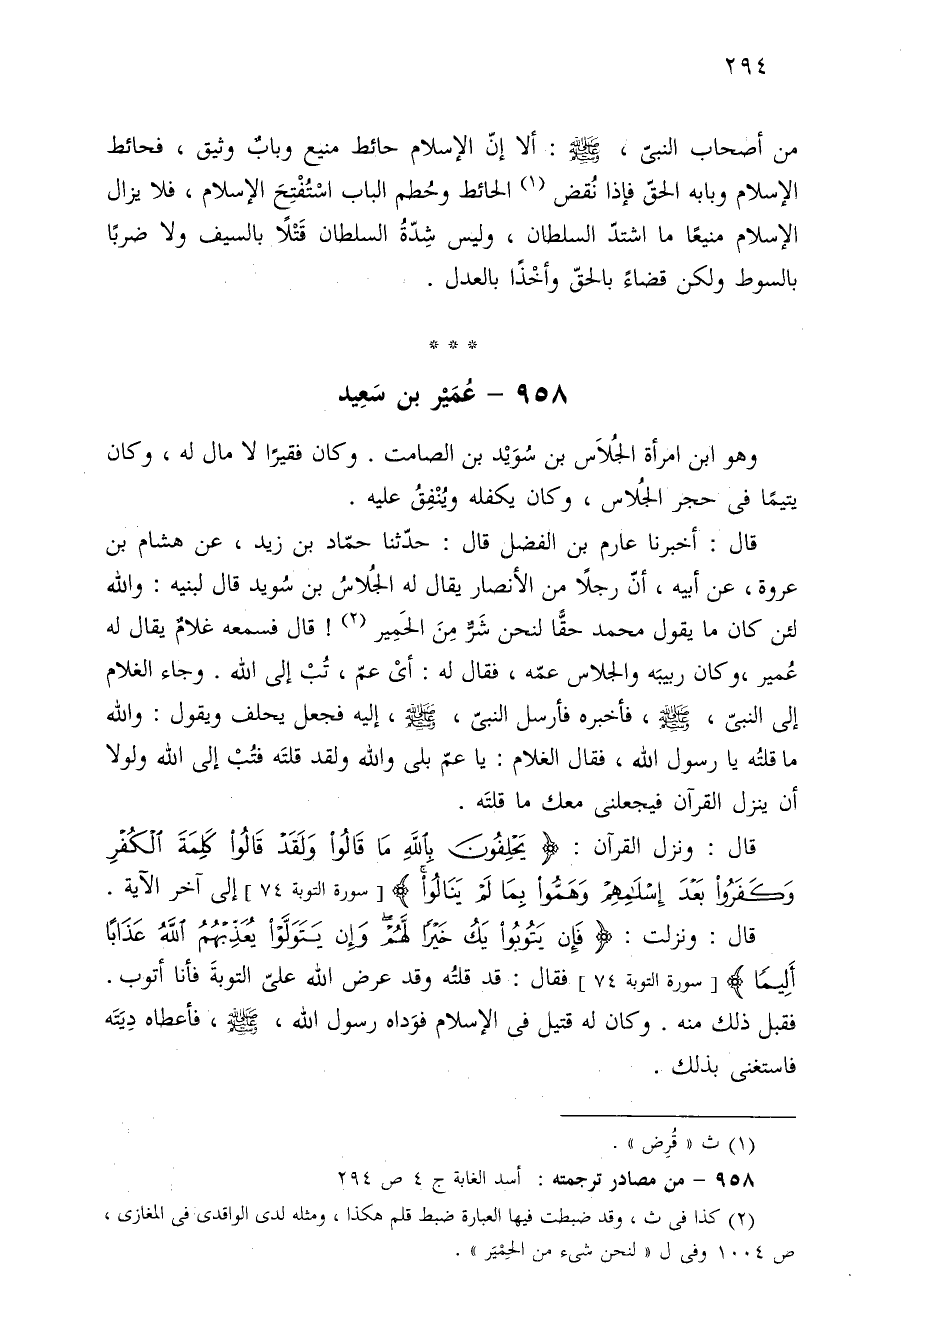 ٢٩٤
من أصحاب النبىّ ، ﷺ : ألا إنّ الإسلام حائط منيع وبابٌ وثيق ، فحائط
الإسلام وبابه الحقّ فإذا نُقض (١) الحائط وحُطم الباب اسْتُفْتِحَ الإسلام ، فلا يزال
الإسلام منيعًا ما اشتدّ السلطان ، وليس شِدّةُ السلطان قَتْلًا بالسيف ولا ضربًا
بالسوط ولكن قضاءً بالحقّ وأخْذًا بالعدل .
* * *
٩٥٨ – عُمَيْر بن سَعِيد
وهو ابن امرأة الجُلاَس بن سُوَيْد بن الصامت . وكان فقيرًا لا مال له ، وكان
يتيمًا فى حجر الجُلاس ، وكان يكفله ويُنْفِقُ عليه .
قال : أخبرنا عارم بن الفضل قال : حدّثنا حمّاد بن زيد ، عن هشام بن
عروة ، عن أبيه ، أنّ رجلًا من الأنصار يقال له الجُلاسُ بن سُويد قال لبنيه : والله
لئن كان ما يقول محمد حقًّا لنحن شَرٌّ مِنَ الحَمِير (٢) ! قال فسمعه غلامٌ يقال له
عُمير ،وكان ربيبَه والجلاس عمّه ، فقال له : أىْ عمّ ، تُبْ إلى الله . وجاء الغلام
إلى النبىّ ، ﷺ ، فأخبره فأرسل النبىّ ، ﷺ ، إليه فجعل يحلف ويقول : والله
ما قلتُه يا رسول الله ، فقال الغلام : يا عمّ بلى والله ولقد قلتَه فتُبْ إلى الله ولولا
أن ينزل القرآن فيجعلنى معك ما قلتَه .
قال : ونزل القرآن : ﴿ يَحْلِفُونَ بِٱللَّهِ مَا قَالُوا۟ وَلَقَدْ قَالُوا۟ كَلِمَةَ ٱلْكُفْرِ
وَكَفَرُوا۟ بَعْدَ إِسْلَٰمِهِمْ وَهَمُّوا۟ بِمَا لَمْ يَنَالُوا۟ۚ ﴾ [ سورة التوبة ٧٤ ] إلى آخر الآية .
قال : ونزلت : ﴿ فَإِن يَتُوبُوا۟ يَكُ خَيْرًا لَّهُمْۖ وَإِن يَتَوَلَّوْا۟ يُعَذِّبْهُمُ ٱللَّهُ عَذَابًا
أَلِيمًا ﴾ [ سورة التوبة ٧٤ ] فقال : قد قلتُه وقد عرض الله علىّ التوبةَ فأنا أتوب .
فقبل ذلك منه . وكان له قتيل فى الإسلام فوَداه رسول الله ، ﷺ ، فأعطاه دِيَتَه
فاستغنى بذلك .
(١) ث « قُرِض » .
٩٥٨ – من مصادر ترجمته : أسد الغابة ج ٤ ص ٢٩٤
(٢) كذا فى ث ، وقد ضبطت فيها العبارة ضبط قلم هكذا ، ومثله لدى الواقدى فى المغازى ،
ص ١٠٠٤ وفى ل « لنحن شىء من الحِمْيَر » .